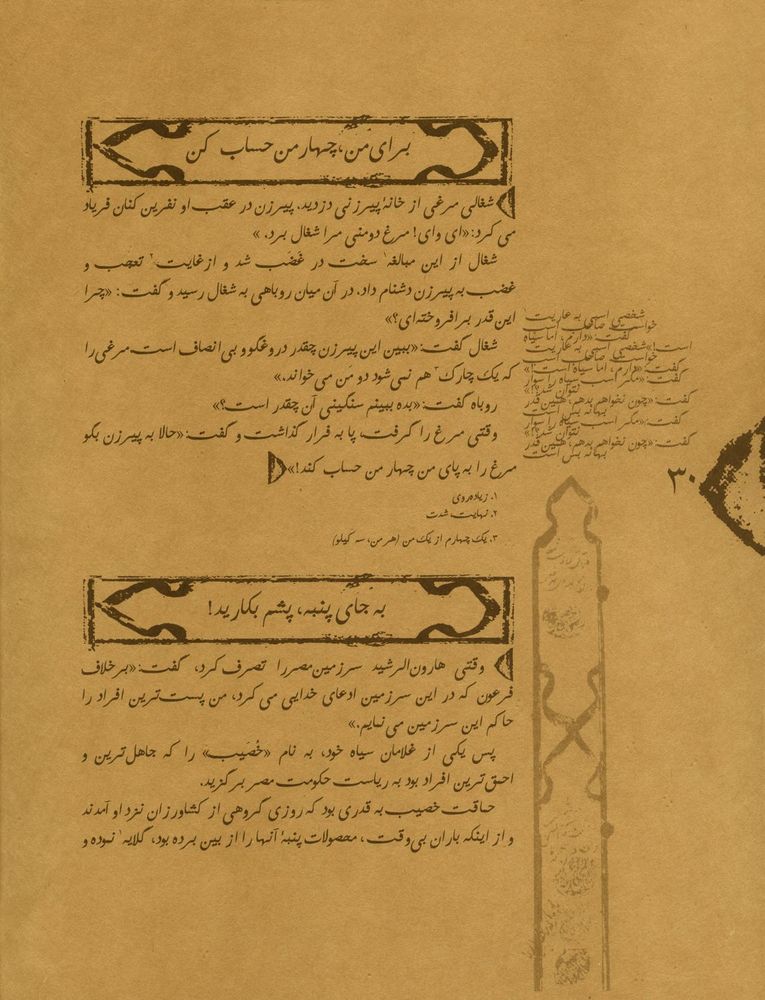 برای من، چهار من حساب کن
شغالی مرغی از خانهٔ پیرزنی دزدید، پیرزن در عقب او نفرین کنان فریاد
می کرد: «ای وای! مرغ دومنی مرا شغال برد.»
شغال از این مبالغه۱ سخت در غضب شد و از غایت۲ تعجب و
غضب به پیرزن دشنام داد، در آن میان روباهی به شغال رسید و گفت: «چرا
این قدر برافروخته‌ای؟»
شغال گفت: «ببین این پیرزن چقدر دروغگو و بی انصاف است، مرغی را
که یک چارک۳ هم نمی شود دو من می خواند.»
روباه گفت: «بده ببینم سنگینی آن چقدر است؟»
وقتی مرغ را گرفت، پا به فرار گذاشت و گفت: «حالا به پیرزن بگو
مرغ را به پای من چهار من حساب کند!»
۱. زیاده‌روی
۲. نهایت، شدت
۳. یک چهارم از یک من (هر من، سه کیلو)
به جای پنبه، پشم بکارید!
وقتی هارون‌الرشید سرزمین مصر را تصرف کرد، گفت: «برخلاف
فرعون که در این سرزمین ادعای خدایی می کرد، من پست‌ترین افراد را
حاکم این سرزمین می نمایم.»
پس یکی از غلامان سیاه خود، به نام «خُصَیب» را که جاهل‌ترین و
احمق‌ترین افراد بود به ریاست حکومت مصر برگزید.
حماقت خصیب به قدری بود که روزی گروهی از کشاورزان نزد او آمدند
و از اینکه باران بی‌وقت، محصولات پنبهٔ آنها را از بین برده بود، گلایه۱ نموده و
شخصی اسبی به عاریت
خواست، صاحب اسب
گفت: «دارم، اما سیاه
است!» شخصی اسبی به عاریت
خواست، صاحب اسب
گفت: «دارم، اما سیاه است!»
گفت: «مگر اسب سیاه را سوار
نتوان شد؟!»
گفت: «چون نخواهم بدهم، همین قدر
بهانه بس است
گفت: «مگر اسب سیاه را سوار
نتوان شد؟!»
گفت: «چون نخواهم بدهم، همین قدر
بهانه بس است
۳۰